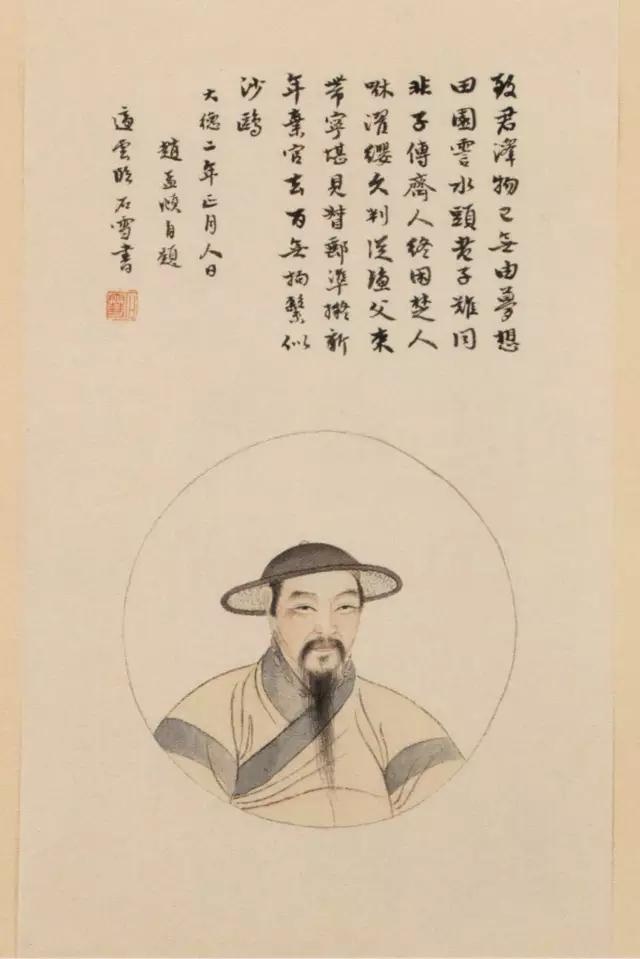 致君澤物已無由夢想
田園霅水頭老子難同
非子傳齊人終困楚人
咻濯纓久判從漁父束
帶寧堪見督郵準擬新
年棄官去百無拘繫似
沙鷗
大德二年正月人日
趙孟頫自題
雲臨石雪書